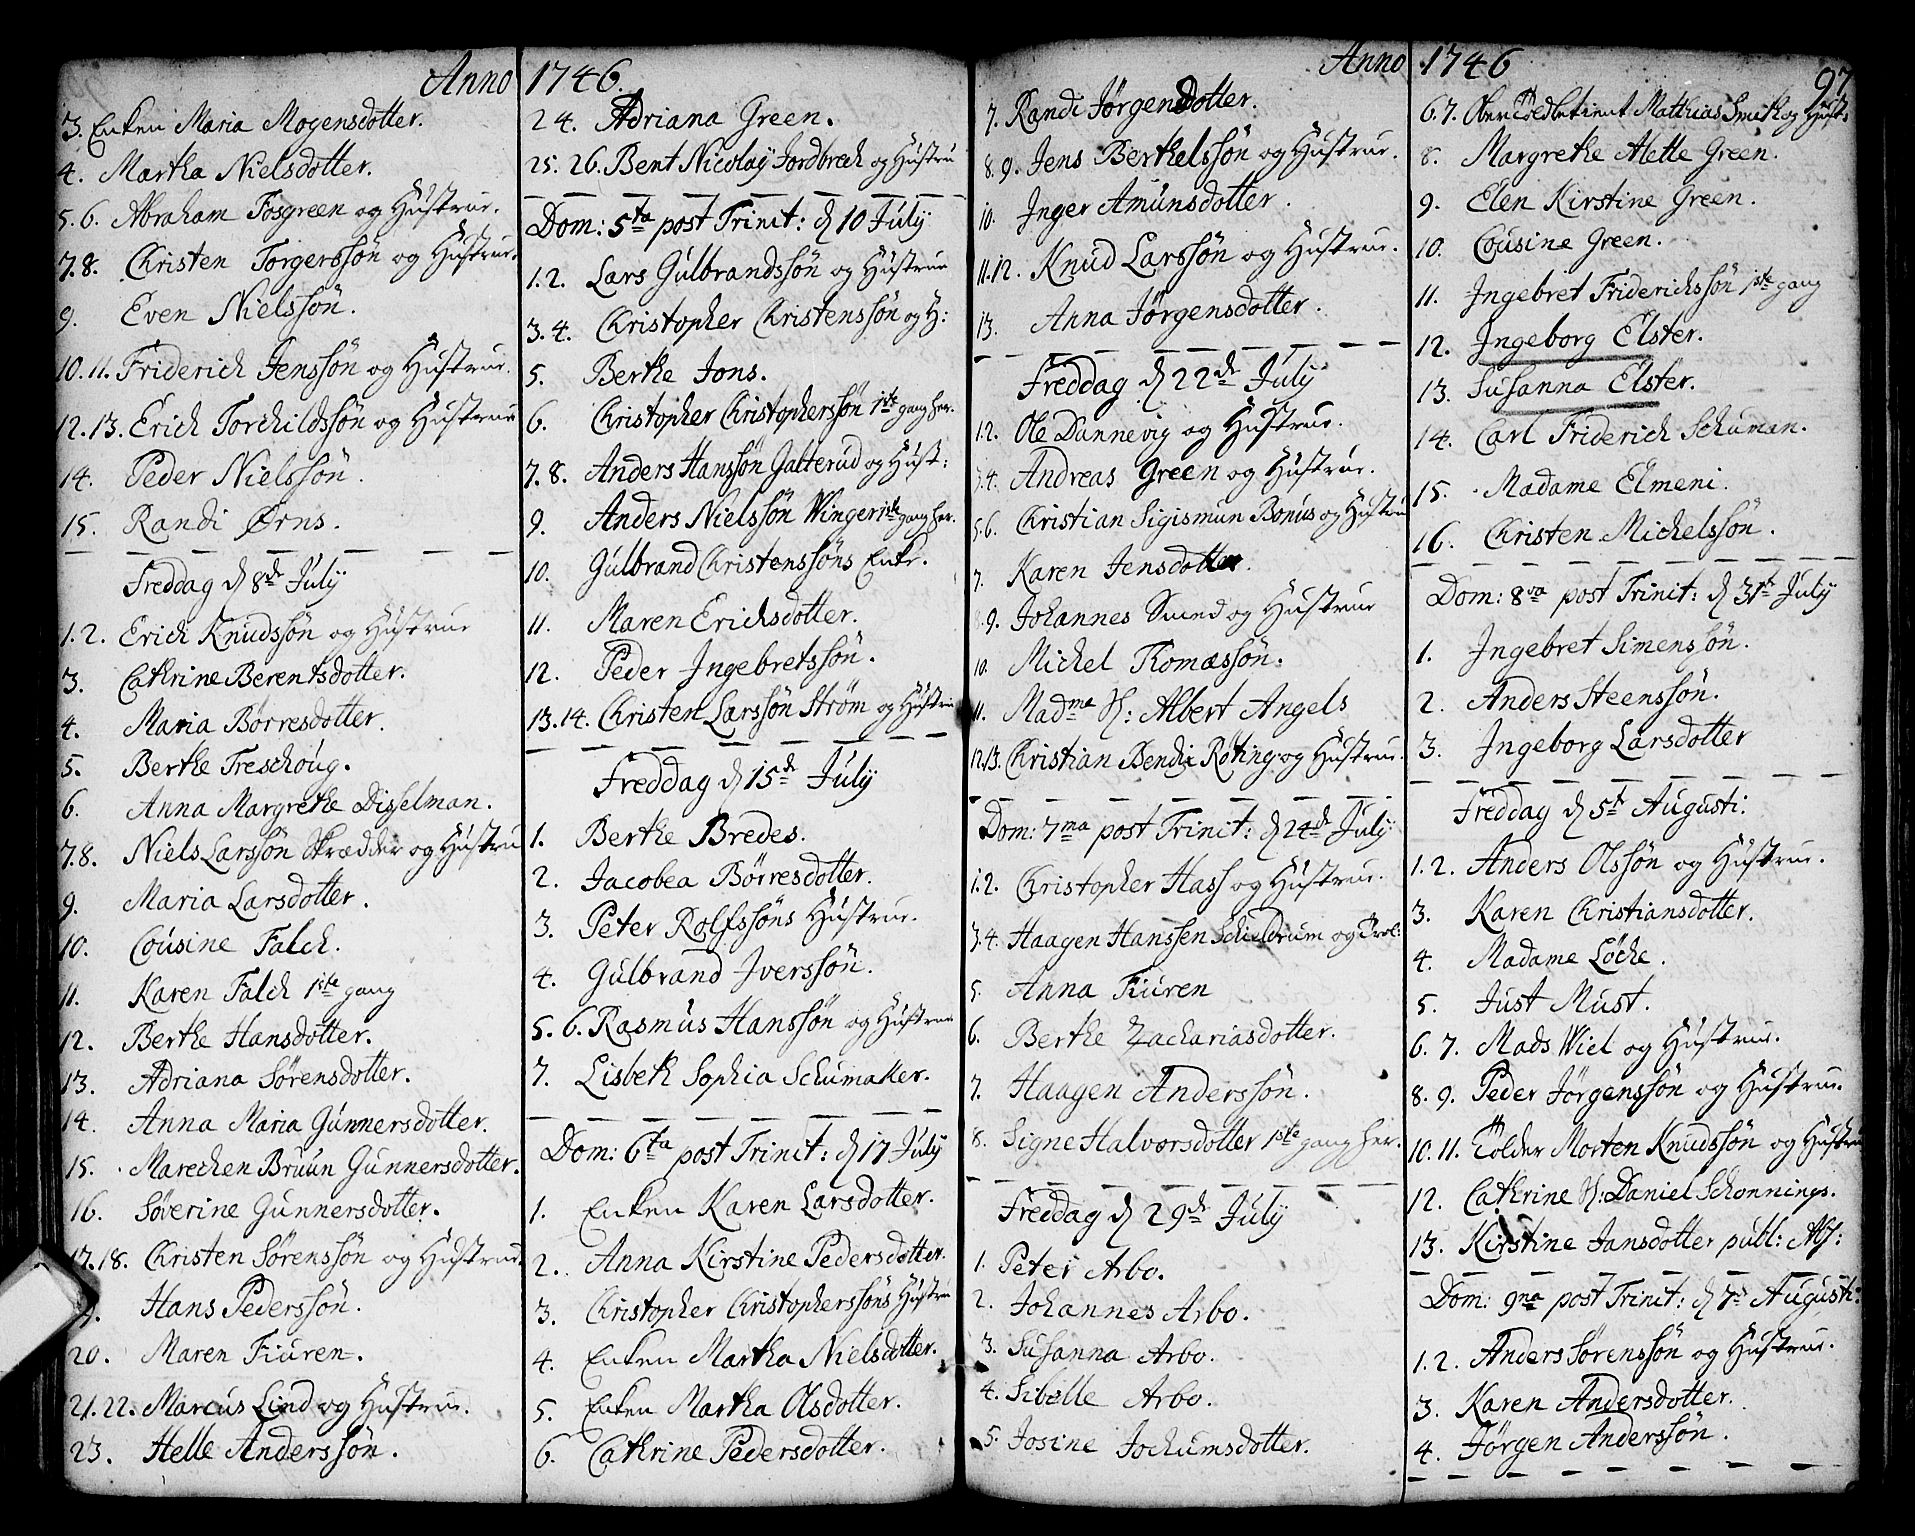 Anno 1746.
3. Enken Maria Mogensdotter.
4. Martha Nielsdotter.
5. 6. Abraham Fosgreen og Hustrue.
7. 8. Christen Torgerssön og Hustrue.
9. Even Nielssön.
10. 11. Friderich Jenssön og Hustrue.
12. 13. Erich Torchildssön og Hustrue
14. Peder Nielssön.
15. Randi Ørns.
Freddag d 8de July
1. 2. Erich Knudssön og Hustrue
3. Cathrine Berentsdotter.
4. Maria Börresdotter.
5. Berthe Treschoug.
6. Anna Margrethe Disselman.
7. 8. Niels Larssön Skrædder og Hustru
9. Maria Larsdotter.
10. Cousine Falch.
11. Karen Falch 1ste gang
12. Berthe Hansdotter.
13. Adriana Sörensdotter.
14. Anna Maria Gunnersdotter.
15. Marechen Bruun Gunnersdotter.
16. Söverine Gunnersdotter.
17. 18. Christen Sörenssön og Hustrue.
Hans Pederssön.
20. Maren Fiuren.
21. 22. Marcus Lind og Hustrue.
23. Helle Anderssön.
24. Adriana Green.
25. 26. Bent Nicolaÿ Jordbrech og Hustru
Dom: 5ta post Trinit: d 10 July
1. 2. Lars Gulbrandssön og Hustrue
3. 4. Christopher Christenssön og H:
5. Berthe Jons.
6. Christopher Christopherssön 1ste gang her.
7. 8. Anders Hanssön Galterud og Hust:
9. Anders Nielssön Winger 1ste gang her.
10. Gulbrand Christenssöns Enke.
11. Maren Erichsdotter.
12. Peder Ingebretssön.
13. 14. Christen Larssön Ström og Hustrue
Freddag d 15de July
1. Berthe Bredes.
2. Jacobea Börresdotter.
3. Peter Rolfssöns Hustrue.
4. Gulbrand Iverssön.
5. 6. Rasmus Hanssön og Hustrue
7. Lisbeth Sophia Schumaker.
Dom: 6ta post Trinit: d 17 July
1. Enken Karen Larsdotter.
2. Anna Kirstine Pedersdotter.
3. Christopher Christopherssöns Hustru
4. Enken Martha Nielsdotter.
5. Enken Martha Olsdotter.
6. Cathrine Pedersdotter.
Anno 1746
97
7. Randi Jörgensdotter.
8. 9. Jens Berthelssön og Hustrue.
10. Inger Amunsdotter.
11. 12. Knud Larssön og Hustrue.
13. Anna Jörgensdotter.
Freddag d 22de July
1. 2. Ole Dannevig og Hustrue.
3. 4. Andreas Green og Hustrue.
5. 6. Christian Sigismun Bonus og Hustru
7. Karen Jensdotter.
8. 9. Johannes Smed og Hustrue
10. Michel Thomæssön.
11. Madme H: Albert Angels
12. 13. Christian Bendix Röting og Hustrue.
Dom: 7ma post Trinit: d 24de July
1. 2. Christopher Hass og Hustrue.
3. 4. Haagen Hanssen Schieldrum og Trol:
5. Anna Fiuren
6. Berthe Zachariasdotter.
7. Haagen Anderssön.
8. Signe Halvorsdotter 1ste gang her.
Freddag d 29de July
1. Peter Arbo.
2. Johannes Arbo.
3. Susanna Arbo.
4. Sibelle Arbo.
5. Josine Jochumsdotter.
6. 7. Matthias Smith og Hust:
8. Margrethe Alette Green.
9. Elen Kirstine Green.
10. Cousine Green.
11. Ingebret Friderichssön 1ste gang
12. Ingeborg Elster.
13. Susanna Elster.
14. Carl Friderich Schuman.
15. Madame Elmeni.
16. Christen Michelssön.
Dom: 8va post Trinit: d 31te July
1. Ingebret Simenssön.
2. Anders Steenssön.
3. Ingeborg Larsdotter
Freddag d 5te Augusti:
1. 2. Anders Olssön og Hustrue.
3. Karen Christiansdotter.
4. Madame Löche.
5. Just Must.
6. 7. Mads Wiel og Hustrue.
8. 9. Peder Jörgenssön og Hustrue.
10. 11. Tolder Morten Knudssön og Hustru
12. Cathrine H: Daniel Schonnings.
13. Kirstine Jansdotter publ: Abs:
Dom: 9na post Trinit: d 7de Augusti:
1. 2. Anders Sörenssön og Hustrue.
3. Karen Andersdotter.
4. Jörgen Anderssön.